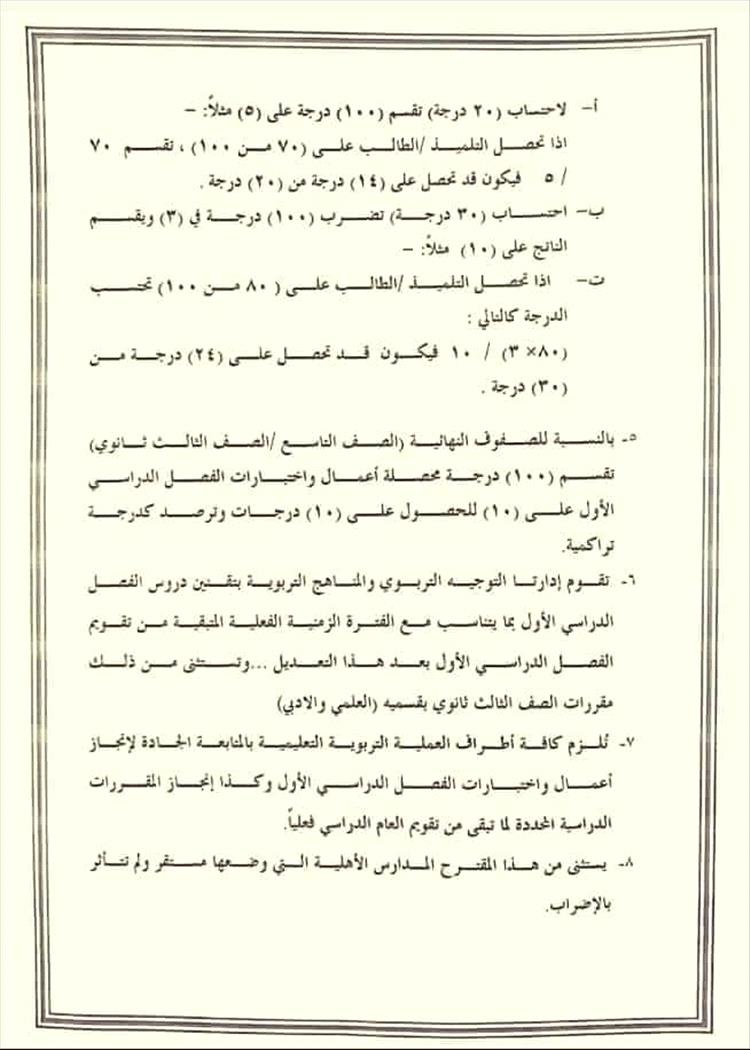 أ- لاحتساب (٢٠ درجة) تقسم (١٠٠) درجة على (٥) مثلاً: -
اذا تحصل التلميذ /الطالب على (٧٠ من ١٠٠) ، تقسم ٧٠
/ ٥ فيكون قد تحصل على (١٤) درجة من (٢٠) درجة .
ب- احتساب (٣٠ درجة) تضرب (١٠٠) درجة في (٣) ويقسم
الناتج على (١٠) مثلاً: -
ت- اذا تحصل التلميذ /الطالب على ( ٨٠ من ١٠٠) تحتسب
الدرجة كالتالي :
(٨٠× ٣) / ١٠ فيكون قد تحصل على (٢٤) درجة من
(٣٠) درجة .
٥- بالنسبة للصفوف النهائية (الصف التاسع /الصف الثالث ثانوي)
تقسم (١٠٠) درجة محصلة أعمال واختبارات الفصل الدراسي
الأول على (١٠) للحصول على (١٠) درجات وترصد كدرجة
تراكمية.
٦- تقوم إدارتا التوجيه التربوي والمناهج التربوية بتقنين دروس الفصل
الدراسي الأول بما يتناسب مع الفترة الزمنية الفعلية المتبقية من تقويم
الفصل الدراسي الأول بعد هذا التعديل ...وتستثنى من ذلك
مقررات الصف الثالث ثانوي بقسميه (العلمي والادبي)
٧- تُلزم كافة أطراف العملية التربوية التعليمية بالمتابعة الجادة لإنجاز
أعمال واختبارات الفصل الدراسي الأول وكذا إنجاز المقررات
الدراسية المحددة لما تبقى من تقويم العام الدراسي فعلياً.
٨- يستثنى من هذا المقترح المدارس الأهلية التي وضعها مستقر ولم تتأثر
بالإضراب.